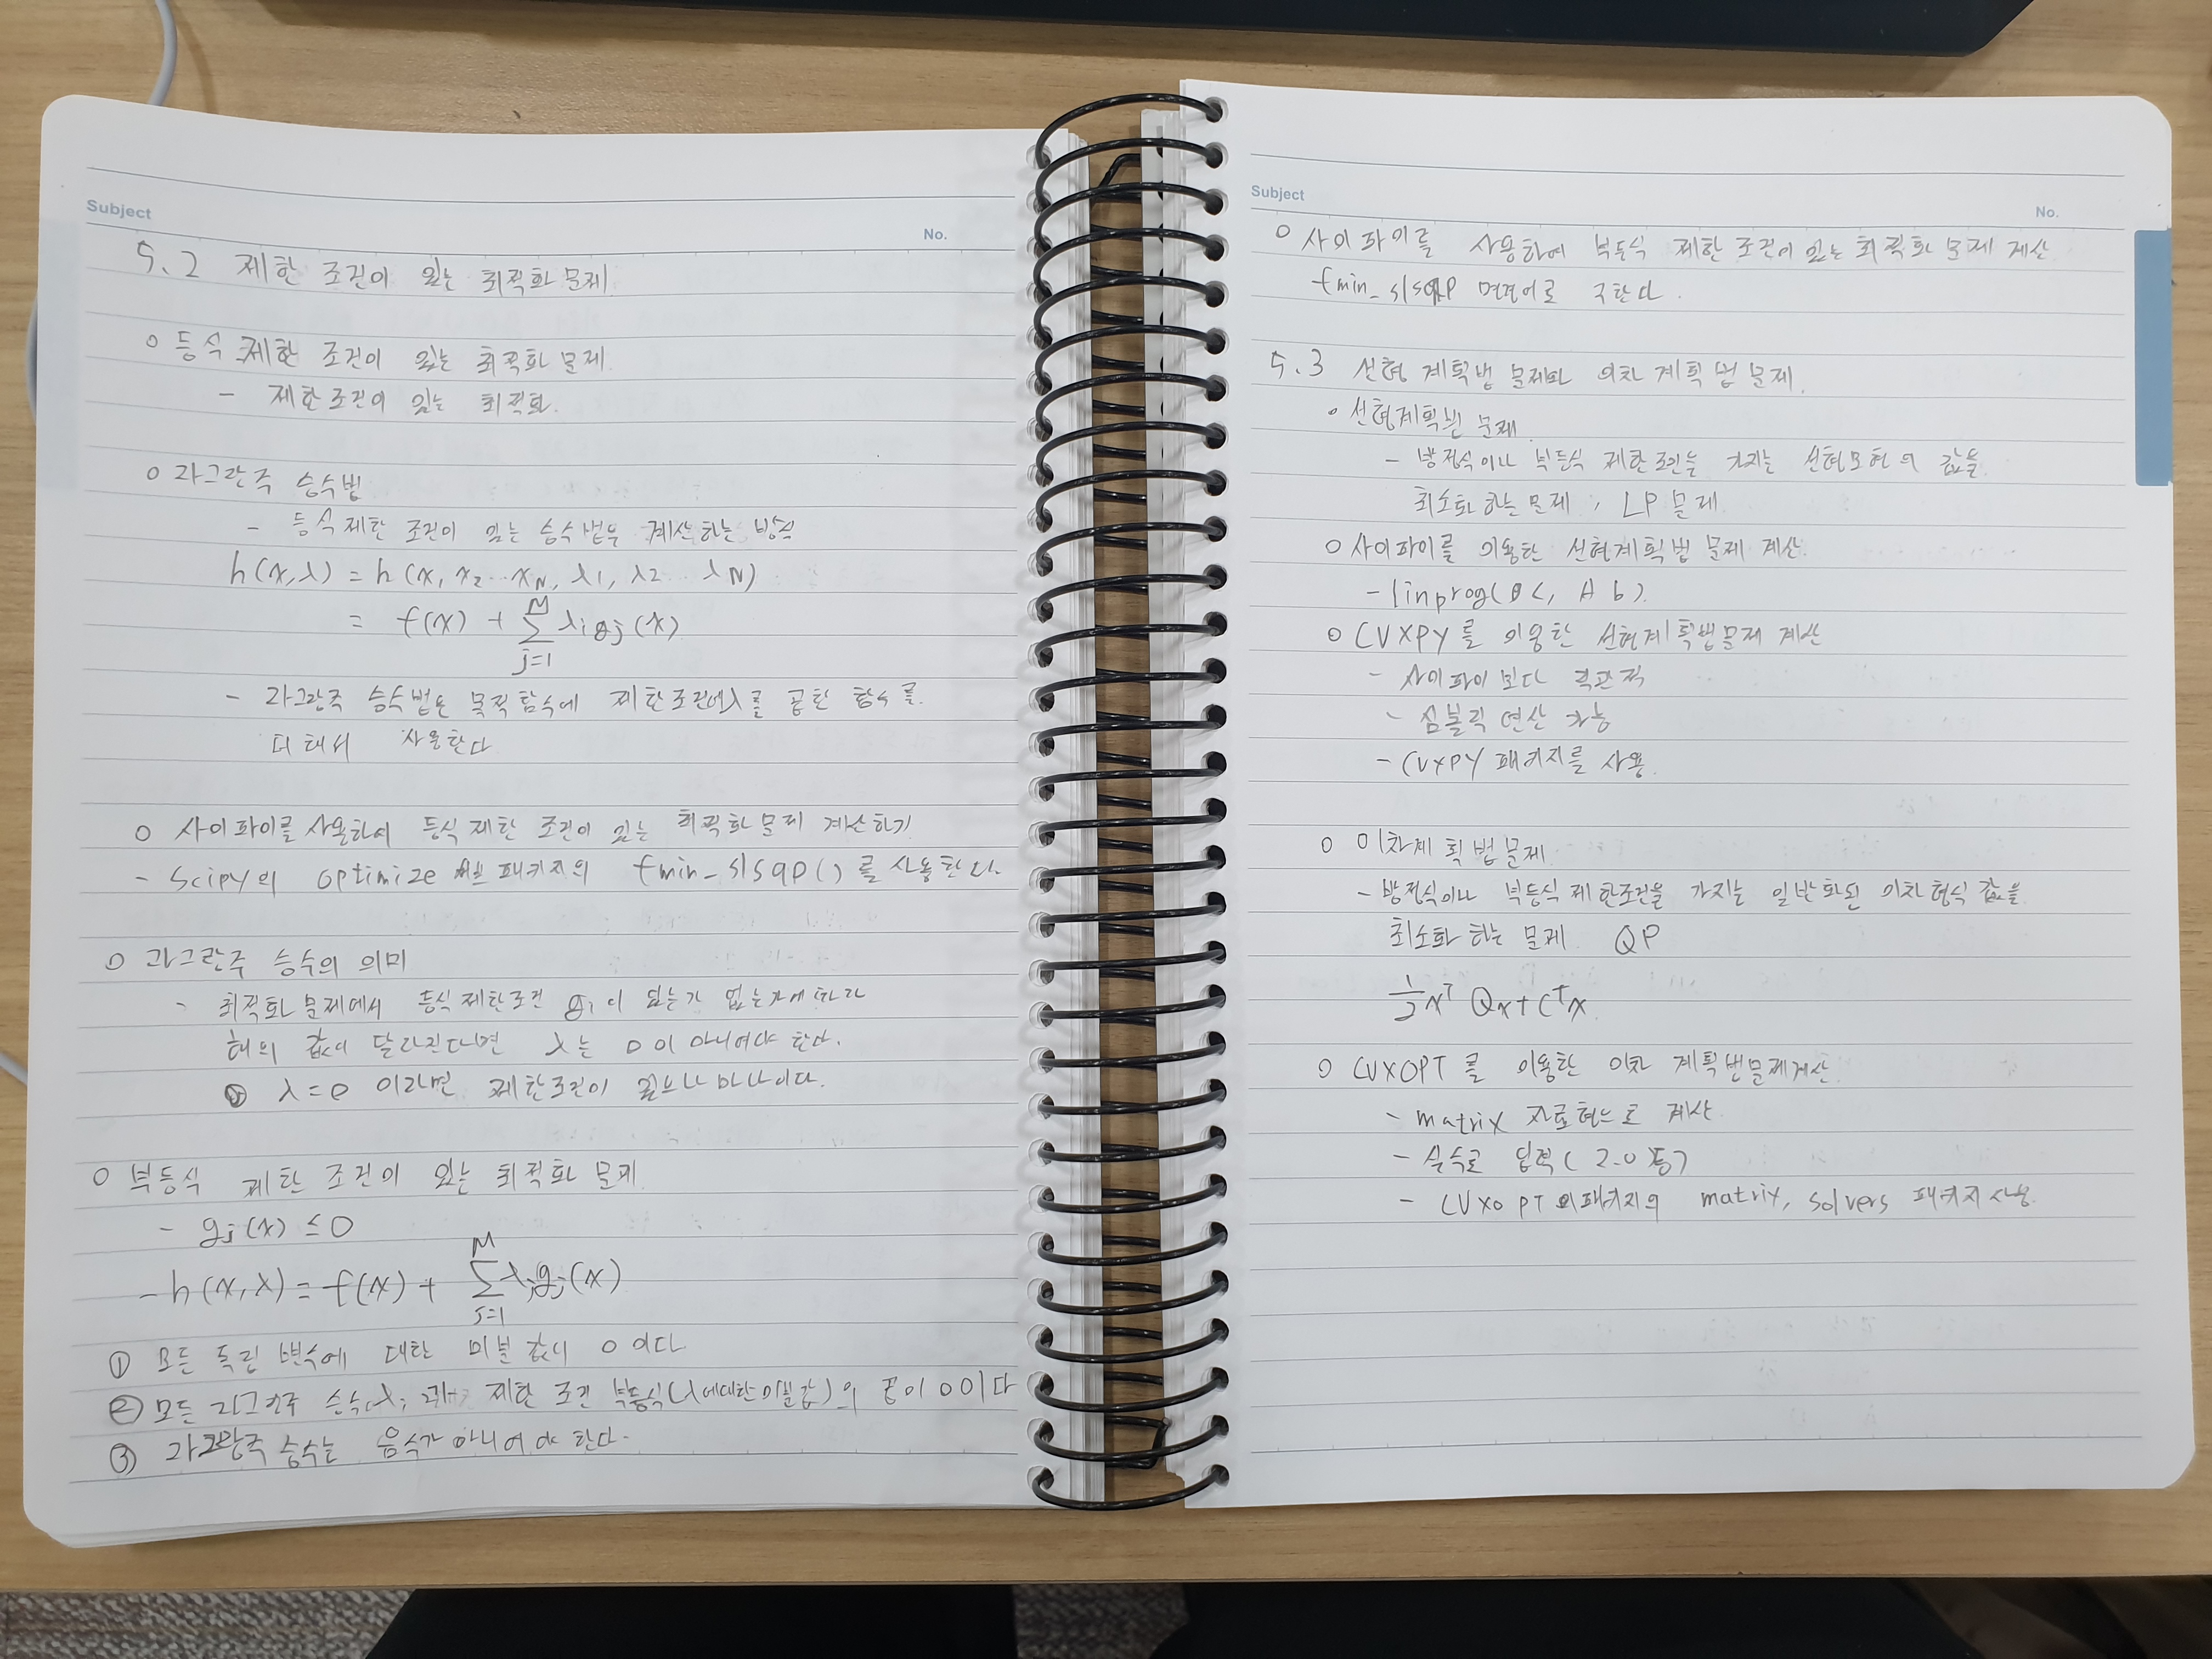 Subject
No.
5.2 제한 조건이 있는 최적화 문제.
o 등식 제한 조건이 있는 최적화 문제.
- 제한조건이 있는 최적화.
o 라그랑주 승수법
- 등식제한 조건이 있는 승수법을 계산하는 방식
h(x,λ) = h(x, x2 ... xN, λ1, λ2 ... λN)
= f(x) + M∑j=1 λigj(x)
- 라그랑주 승수법은 목적함수에 제한조건에λ를 곱한 함수를.
더해서 사용한다
o 사이파이를 사용하여 등식 제한 조건이 있는 최적화문제 계산하기
- Scipy의 optimize 서브패키지의 fmin_slsqp()를 사용한다.
o 라그랑주 승수의 의미
- 최적화 문제에서 등식제한조건 gi이 있는가 없는가에 따라
해의 값이 달라진다면 λ는 0이 아니어야 한다.
λ=0 이라면 제한조건이 있으나 마나이다.
o 부등식 제한 조건이 있는 최적화 문제.
- gj(x) ≤ 0
- h(x,λ) = f(x) + M∑j=1 λjgj(x)
① 모든 독립 변수에 대한 미분 값이 0 이다
② 모든 라그랑주 승수 λi 제한 조건 부등식(λ에대한미분값)의 곱이 0이다
③ 라그랑주 승수는 음수가 아니어야 한다.
Subject
No.
o 사이파이를 사용하여 부등식 제한조건이 있는 최적화 문제 계산
fmin_slsqp 명령어로 구한다.
5.3 선형 계획법 문제와 이차 계획법 문제.
o 선형계획법 문제.
- 방정식이나 부등식 제한조건을 가지는 선형모형의 값을
최소화하는 문제, LP 문제
o 사이파이를 이용한 선형계획법 문제 계산.
- linprog( c, A b).
o CVXPY를 이용한 선형계획법문제 계산
- 사이파이보다 직관적
- 심볼릭 연산 가능
- CVXPY 패키지를 사용.
o 이차계획법문제.
- 방정식이나 부등식 제한조건을 가지는 일반화된 이차형식 값을
최소화 하는 문제. QP
1/2 xᵀ Qx + Cᵀx.
o CVXOPT를 이용한 이차 계획법문제계산.
- matrix 자료형으로 계산.
- 실수로 입력( 2.0 등)
- CVXOPT 패키지의 matrix, solvers 패키지 사용.